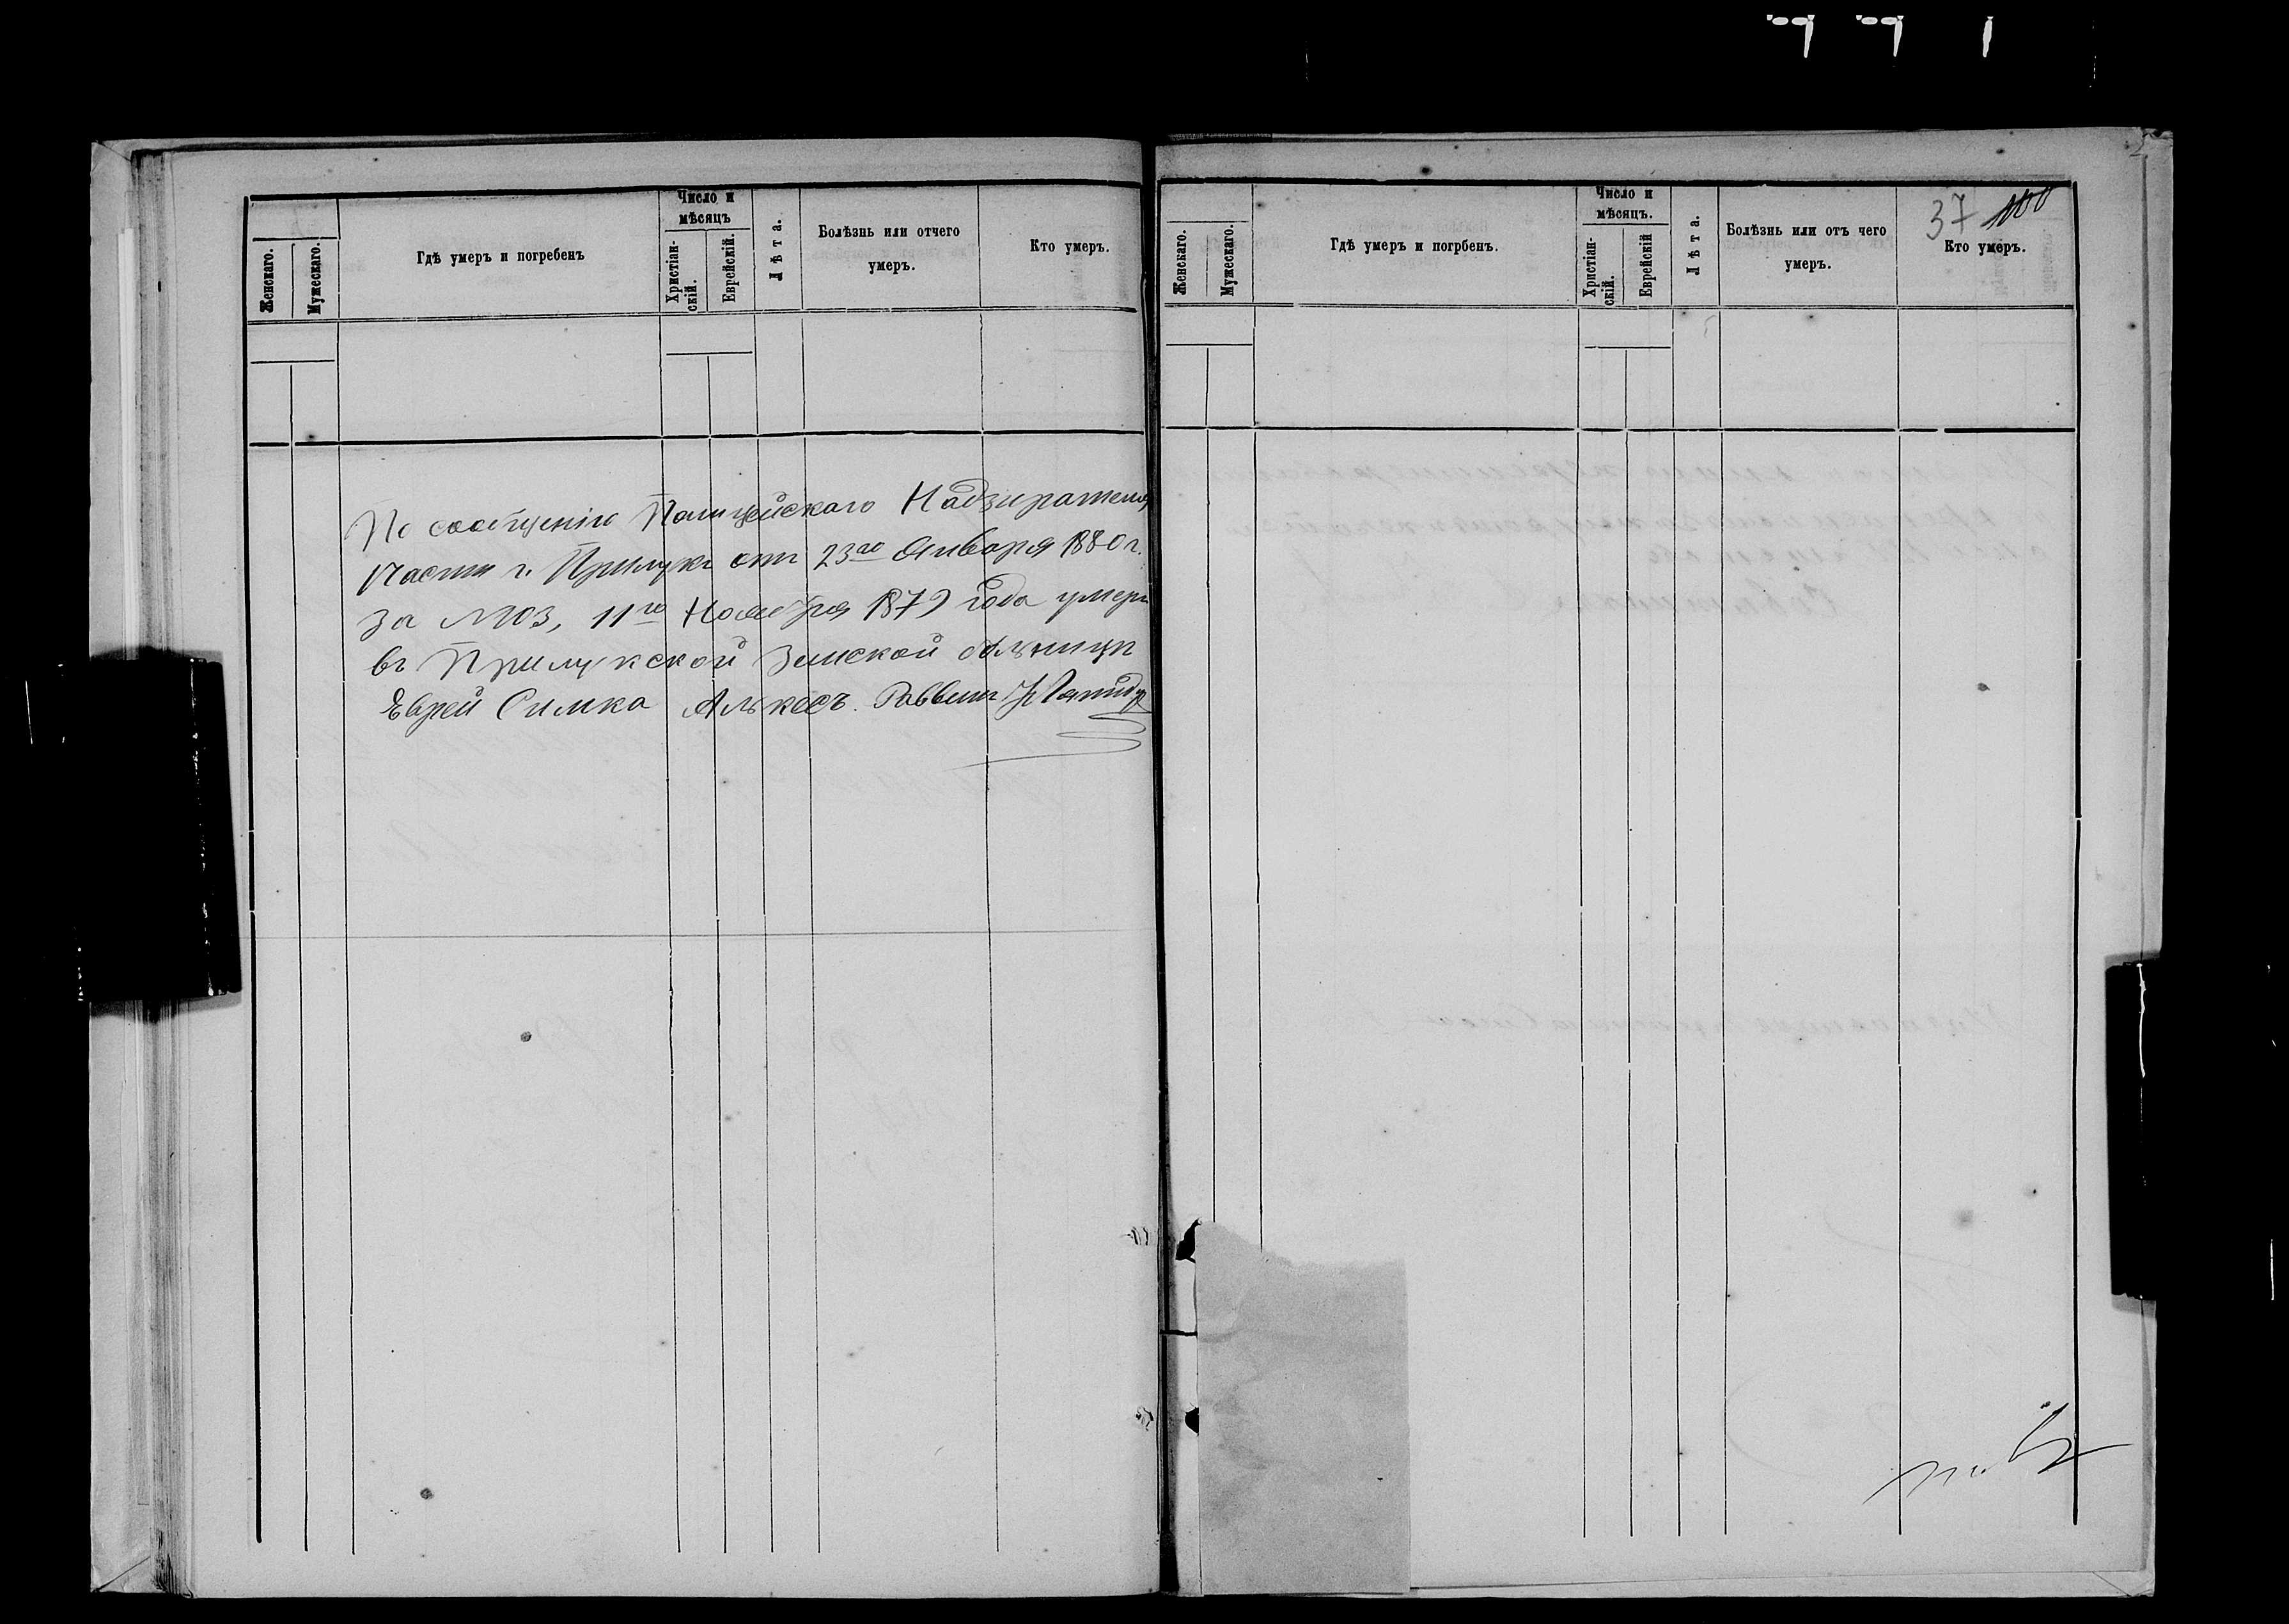 Женскаго.
Мужескаго.
Гдѣ умеръ и погребенъ
Число и
мѣсяцъ
Христіан-
скій.
Еврейскій.
Лѣта.
Болѣзнь или отчего
умеръ.
Кто умеръ.
По сообщенію Полицейскаго Надзирателя
Части г. Прилукъ отъ 23го Января 1880 г.
за № 103, 11го Ноября 1879 года умеръ
въ Прилукской Земской больницѣ
Еврей Симка Алькесъ. Раввинъ
Женскаго.
Мужескаго.
Гдѣ умеръ и погрбенъ.
Число и
мѣсяцъ.
Христіан-
скій.
Еврейскій
Лѣта.
Болѣзнь или отъ чего
умеръ.
37 100
Кто умеръ.